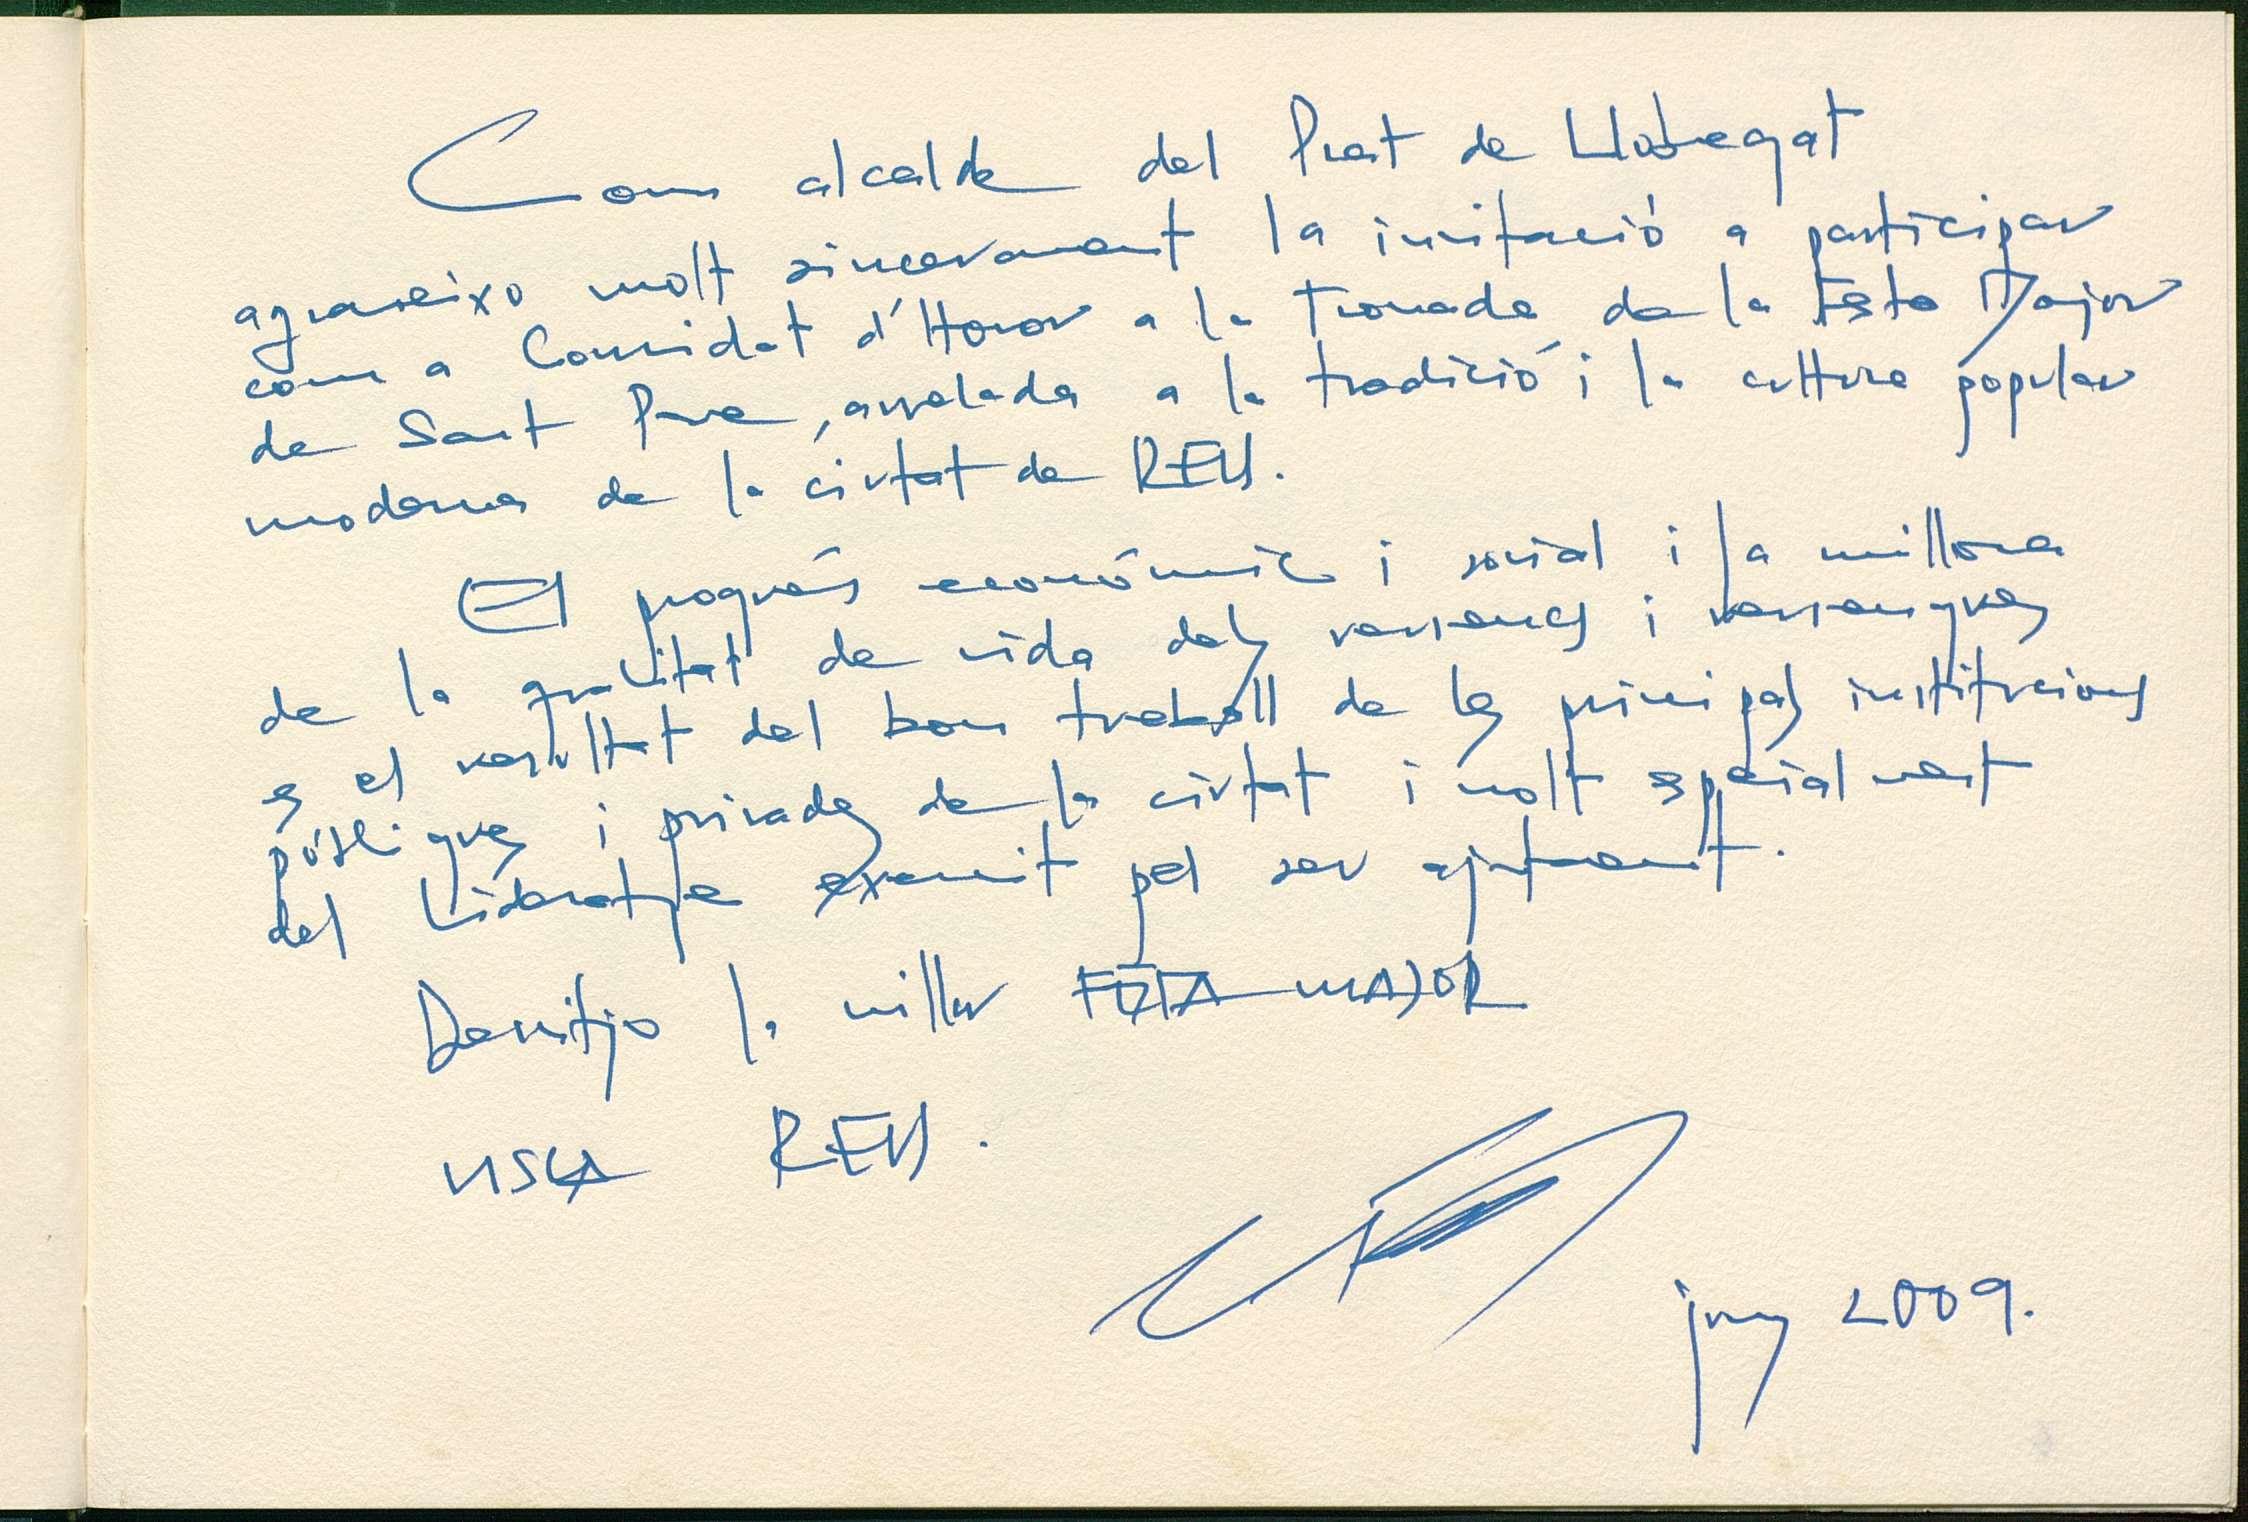 Com alcalde del Prat de Llobregat
agraeixo molt sincerament la invitació a participar
com a Convidat d'Honor a la Tronada de la Festa Major
de Sant Pere, arrelada a la tradició i la cultura popular
moderna de la ciutat de REUS.
El progrés econòmic i social i la millora
de la qualitat de vida dels reusencs i reusenques
es el resultat del bon treball de les principals institucions
públiques i privades de la ciutat i molt especialment
del Lideratge exercit pel seu ajuntament.
Desitjo la millor FESTA MAJOR
VISCA REUS.
juny 2009.